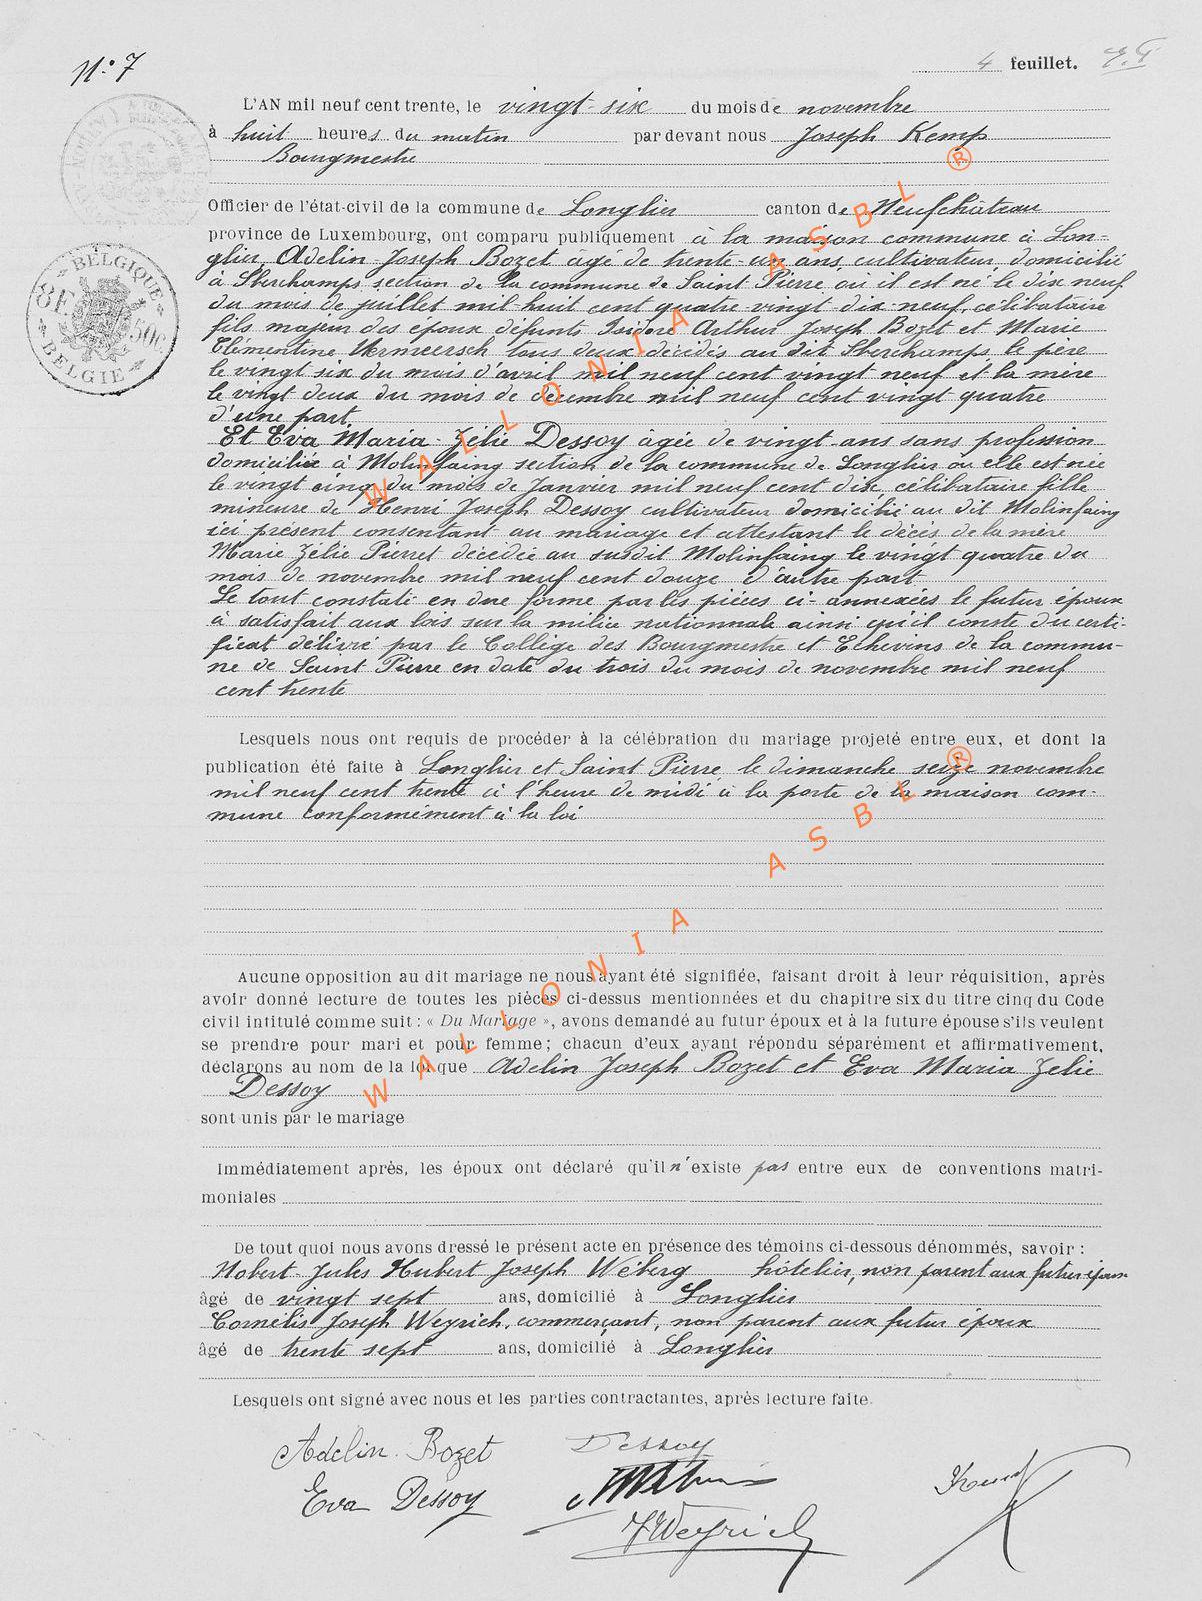 N° 7
4 feuillet.
L'AN mil neuf cent trente, le vingt-six du mois de novembre
à huit heures du matin par devant nous Joseph Kemp
Bourgmestre
Officier de l'état-civil de la commune de Longlier canton de Neufchâteau
province de Luxembourg, ont comparu publiquement à la maison commune à Lon-
glier, Adelin-Joseph Bozet âgé de trente-un ans, cultivateur, domicilié
à Sberchamps section de la commune de Saint Pierre où il est né le dix neuf
du mois de juillet mil huit cent quatre vingt dix-neuf, célibataire
fils majeur des époux défunts Isidore Arthur Joseph Bozet et Marie
Clémentine Vermeersch tous deux décédés au dit Sberchamps, le père
le vingt six du mois d'avril mil neuf cent vingt neuf et la mère
le vingt deux du mois de décembre mil neuf cent vingt quatre
d'une part,
Et Eva Maria-Zélie Dessoy âgée de vingt ans sans profession
domiciliée à Molinfaing section de la commune de Longlier où elle est née
le vingt cinq du mois de Janvier mil neuf cent dix, célibataire fille
mineure de Henri Joseph Dessoy cultivateur domicilié au dit Molinfaing
ici présent consentant au mariage et attestant le décès de la mère
Marie Zélie Pierret décédée au susdit Molinfaing le vingt quatre du
mois de novembre mil neuf cent douze d'autre part
Le tout constaté en due forme par les pièces ci-annexées le futur époux
a satisfait aux lois sur la milice nationale ainsi qu'il conste du certi-
ficat délivré par le Collège des Bourgmestre et Echevins de la commu-
ne de Saint Pierre en date du trois du mois de novembre mil neuf
cent trente
Lesquels nous ont requis de procéder à la célébration du mariage projeté entre eux, et dont la
publication été faite à Longlier et Saint Pierre, le dimanche seize novembre
mil neuf cent trente à l'heure de midi à la porte de la maison com-
mune conformément à la loi
Aucune opposition au dit mariage ne nous ayant été signifiée, faisant droit à leur réquisition, après
avoir donné lecture de toutes les pièces ci-dessus mentionnées et du chapitre six du titre cinq du Code
civil intitulé comme suit : « Du Mariage », avons demandé au futur époux et à la future épouse s'ils veulent
se prendre pour mari et pour femme ; chacun d'eux ayant répondu séparément et affirmativement,
déclarons au nom de la loi que Adelin Joseph Bozet et Eva Maria Zelie
Dessoy
sont unis par le mariage
Immédiatement après, les époux ont déclaré qu'il n'existe pas entre eux de conventions matri-
moniales
De tout quoi nous avons dressé le présent acte en présence des témoins ci-dessous dénommés, savoir :
Nobert-Jules Hubert Joseph Wéberg hôtelier, non parent aux futur époux
âgé de vingt sept ans, domicilié à Longlier
Cornélis Joseph Weyrich, commerçant, non parent aux futur époux
âgé de trente sept ans, domicilié à Longlier
Lesquels ont signé avec nous et les parties contractantes, après lecture faite.
Adelin Bozet Dessoy
Eva Dessoy
JWeyrich
BELGIQUE
8F. 50c.
BELGIE
WALLONIA ASBL ®
WALLONIA ASBL ®